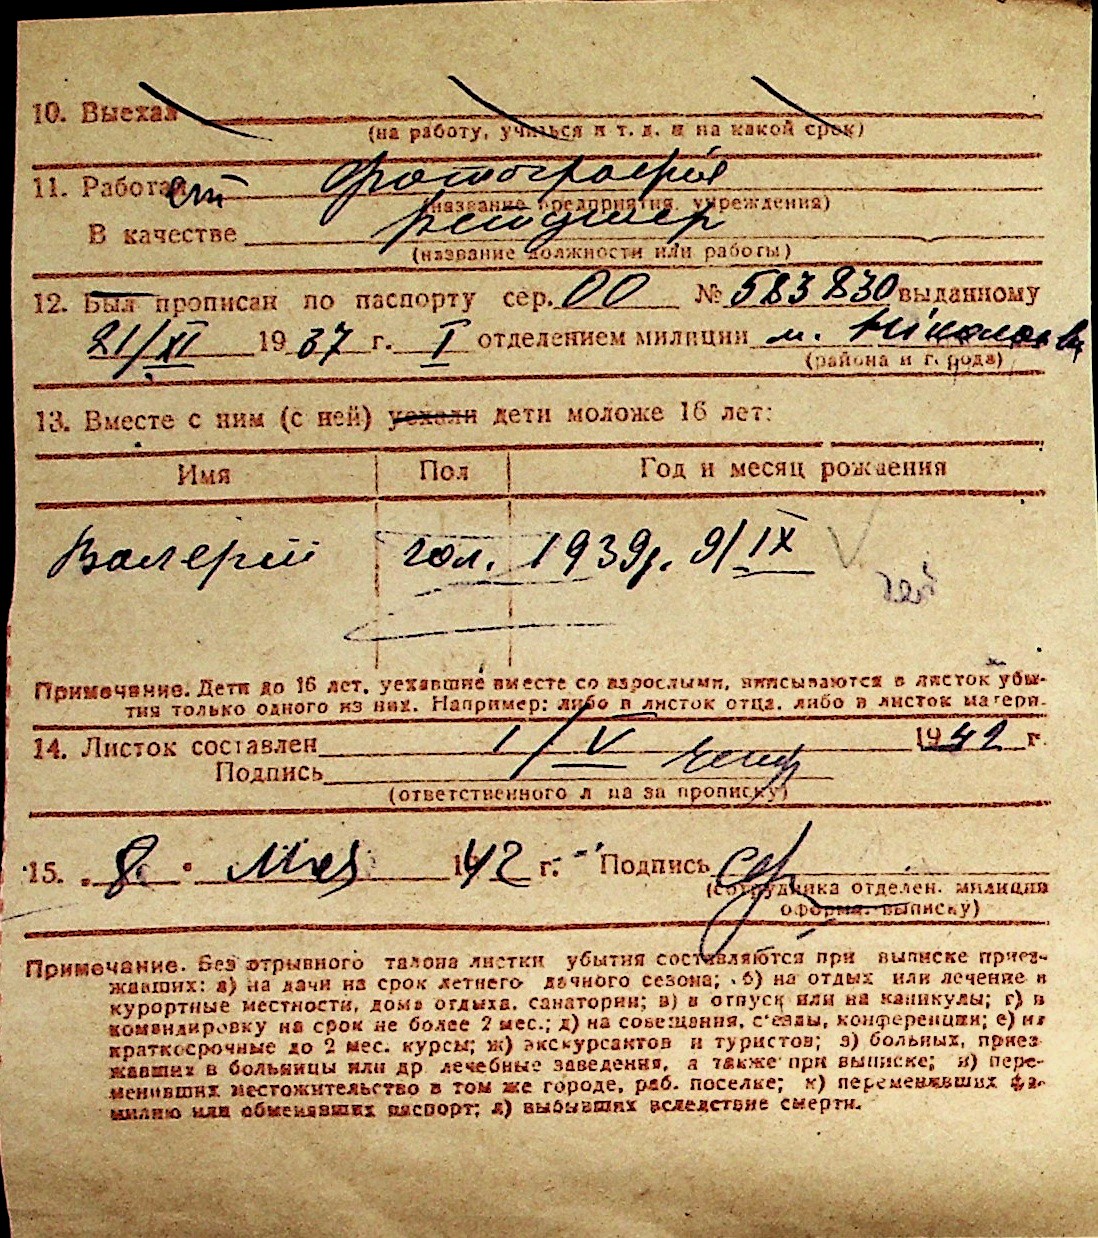 10. Выехал
(на работу, учиться и т. д. и на какой срок)
11. Работает фотография
(название предприятия, учреждения)
В качестве ретушер
(название должности или работы)
12. Был прописан по паспорту сер. 00 № 583830 выданному
21/XI 1937 г. I отделением милиции м. Ніколаєв
(района и города)
13. Вместе с ним (с ней) уехали дети моложе 16 лет:
Имя Пол Год и месяц рождения
Валерій чол. 1939р. 9/IX
Примечание. Дети до 16 лет, уехавшие вместе со взрослыми, вписываются в листок убы-
тия только одного из них. Например: либо в листок отца, либо в листок матери.
14. Листок составлен 1/V 1942 г.
Подпись
(ответственного лица за прописку)
15. „8“ Мая 1942 г. Подпись
(сотрудника отделен. милиции
оформ. выписку)
Примечание. Без отрывного талона листки убытия составляются при выписке приез-
жавших: а) на дачи на срок летнего дачного сезона; б) на отдых или лечение в
курортные местности, дома отдыха, санатории; в) в отпуск или на каникулы; г) в
командировку на срок не более 2 мес.; д) на совещания, с'езды, конференции; е) на
краткосрочные до 2 мес. курсы; ж) экскурсантов и туристов; з) больных, приез
жавших в больницы или др лечебные заведения, а также при выписке; и) пере-
менивших местожительство в том же городе, раб. поселке; к) переменявших фа-
милию или обменявших паспорт; л) выбывших вследствие смерти.